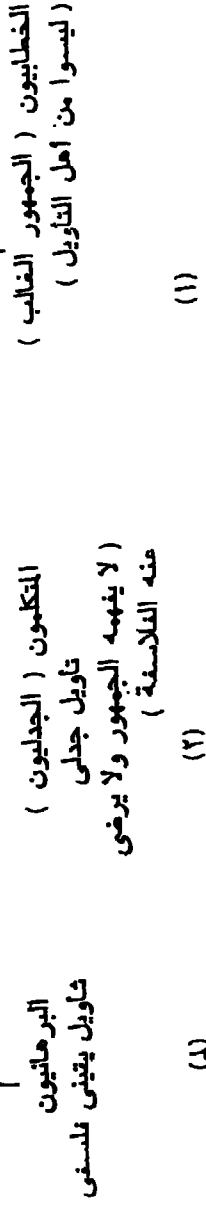 الخطابيون ( الجمهور الغالب )
( ليسوا من أهل التأويل )
(١)
المتكلمون ( الجدليون )
تأويل جدلى
( لا يفهمه الجمهور ولا يرضى
عنه الفلاسفة )
(٢)
البرهانيون
تأويل يقينى فلسفى
(٣)